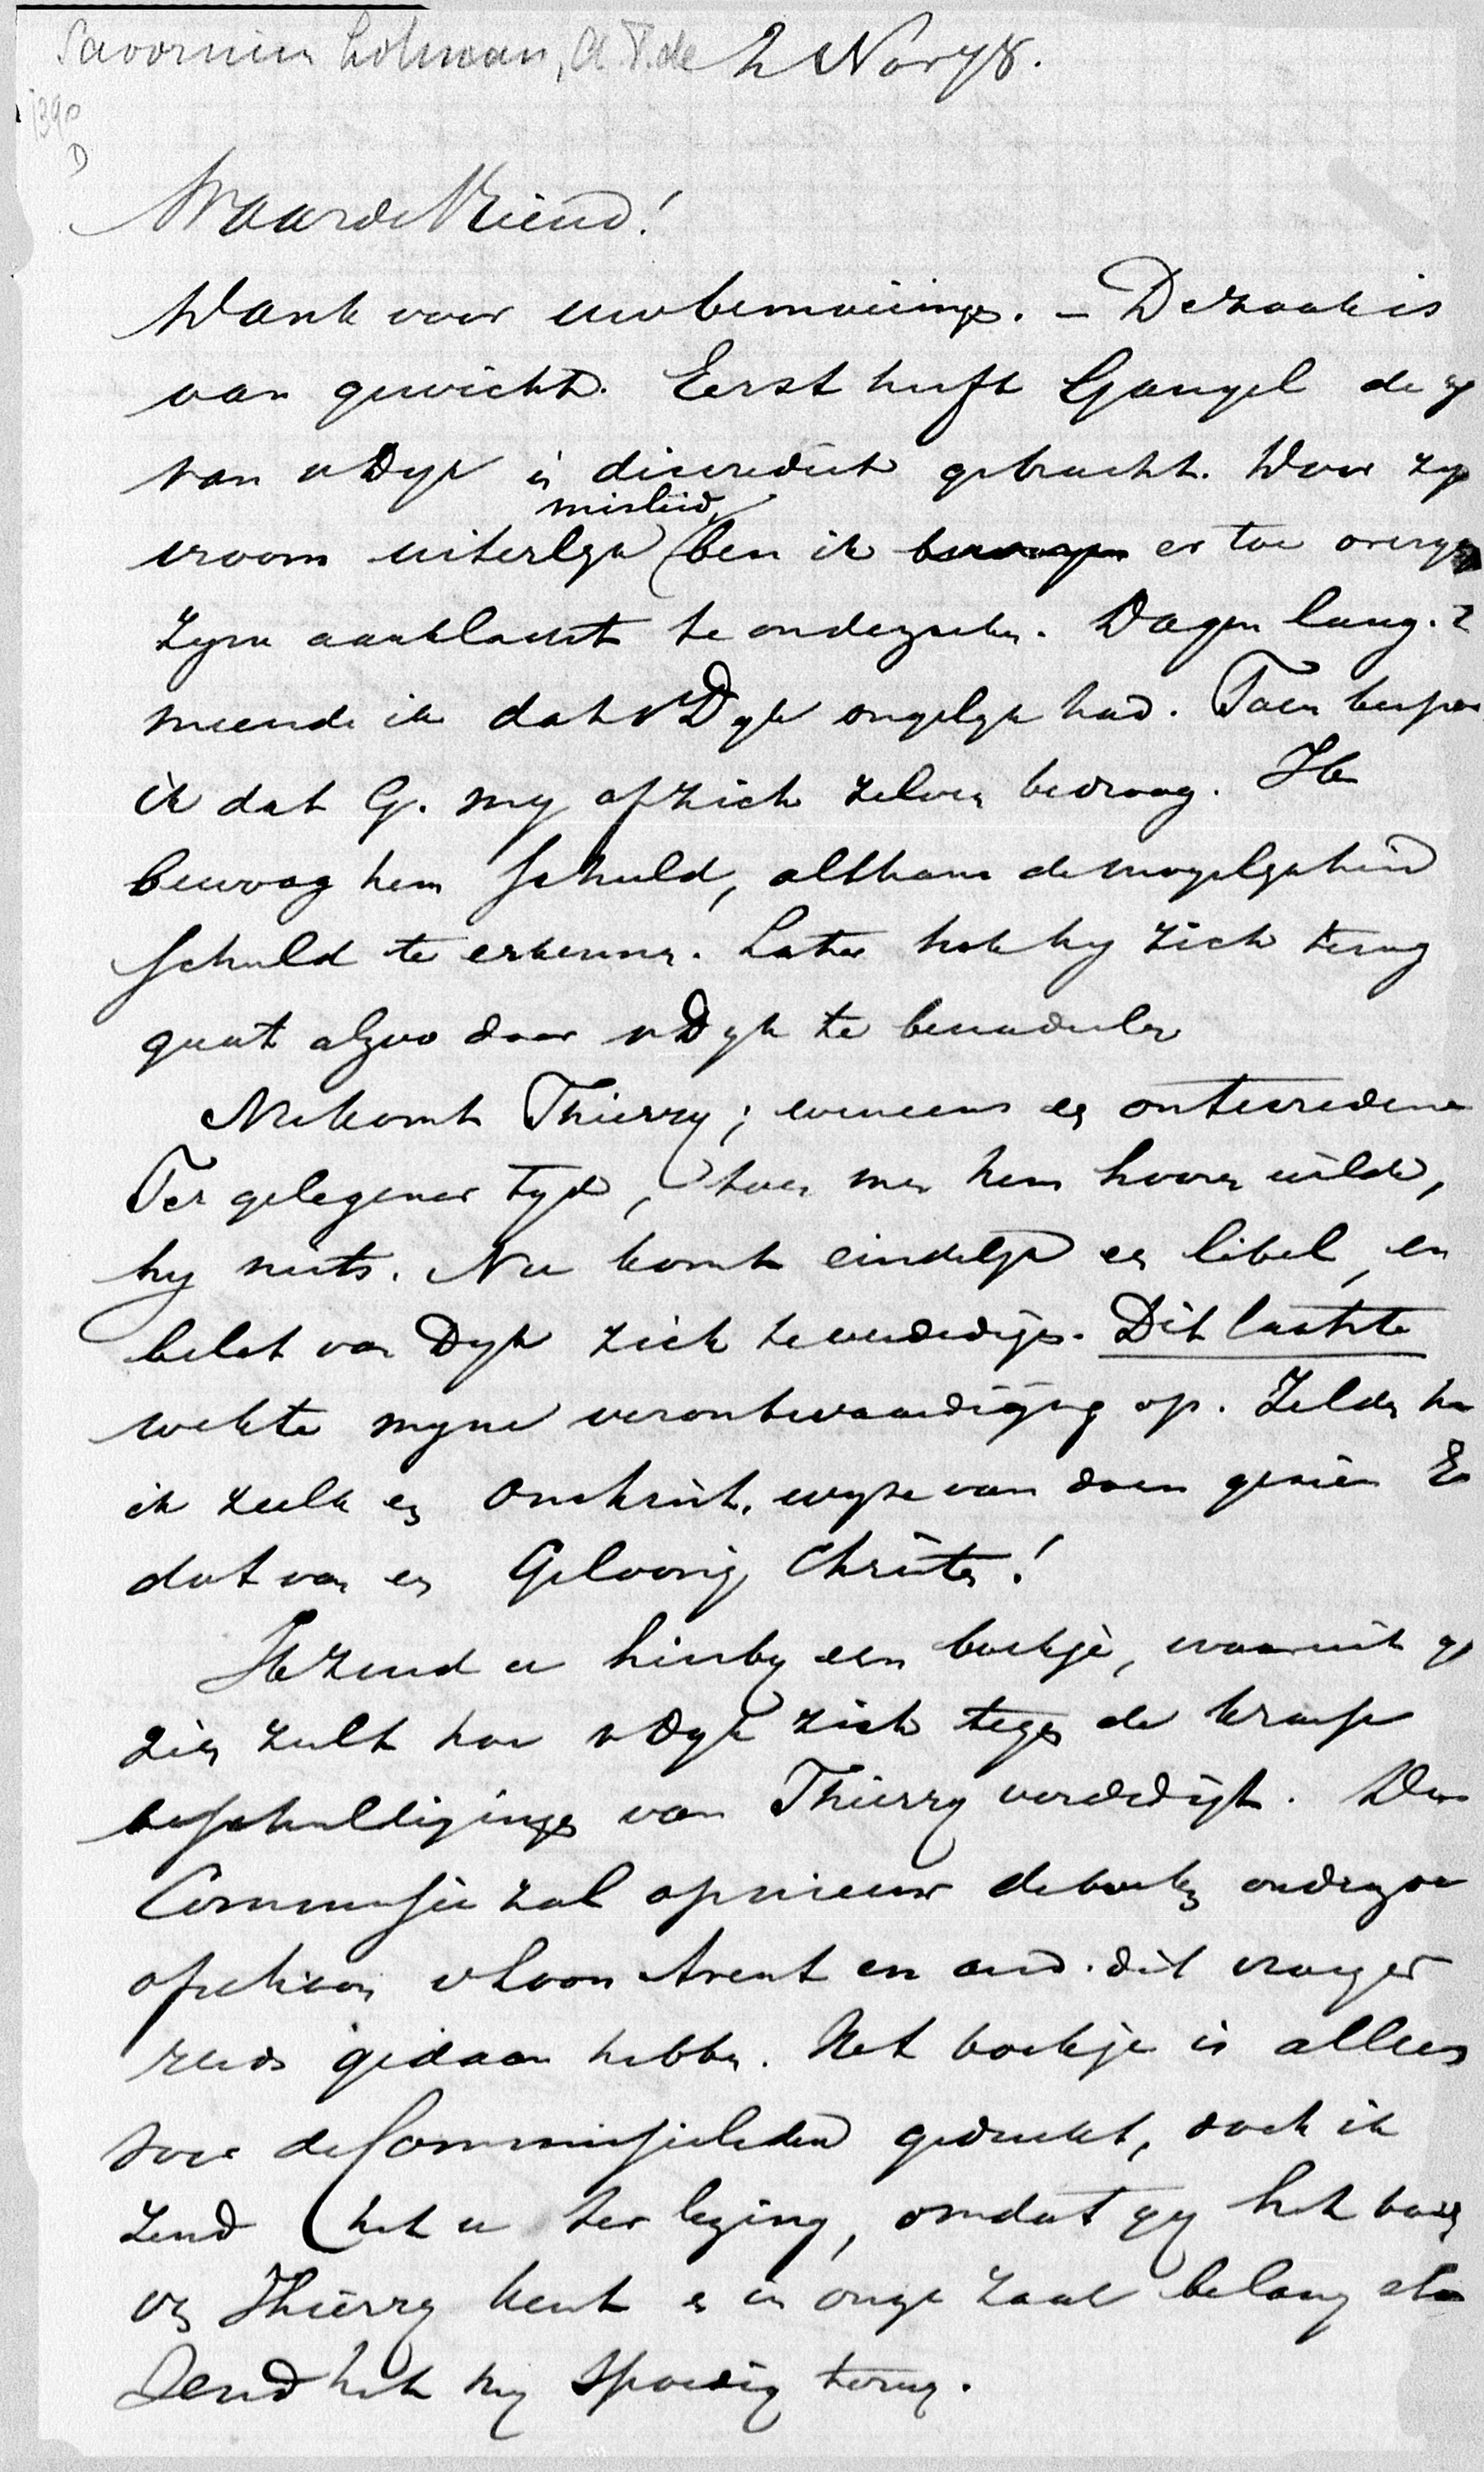 Savornin Lohman, A.F. de 2 Nov 78.
139e
D
Waarde Vriend!
Dank voor uw bemoeiinge. – De zaak is
van gewicht. Eerst heeft Gangel de
van v Dyk in discrediet gebracht. Door zyn
misleid,
vroom uiterlyk ben ik er toe overge
zyne aanklacht te onderzoeken. Dagen lang.
meende ik dat v Dyk ongelyk had. Toen
ik dat G. my of zich zelven bedroog. Ik
bewoog hem schuld, althans de mogelykheid
schuld te erkennen. Later trok hy zich terug
gaat alzoo door v Dyk te benadeelen
Nu komt Thierry; eveneens en ontevredene
Ter gelegener tyd, toen men hem hooren wilde,
hy niets. Nu komt eindelyk en libel, en
belet van Dyk zich te verdedigen. Dit laatste
wekte myne verontwaardiging op. Zelden he
ik zulk en onchrist. wyze van doen gezien En
dat van en Geloovig Christen!
Ik zend u hierby een boekje, waaruit gy
zien zult hoe v Dyk zich tegen de
beschuldigingen van Thierry verdedigt. De
Commissie zal opnieuw de boeken onderzoe
ofschoon v Loon Avent en and. dit vroeger
reeds gedaan hebben. Het boekje is alleen
voor de Commissieleden gedrukt, doch ik
zend het u ter lezing, omdat gy het
v Thierry kent en in onze zaak belang ste
Zend het my spoedig terug.